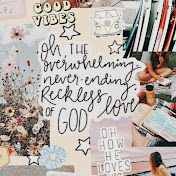 GOOD
VIBES
oh, THE
overwhelming,
never-ending
Reckless
love
OF
GOD
OH
HOW
HE
LOVES